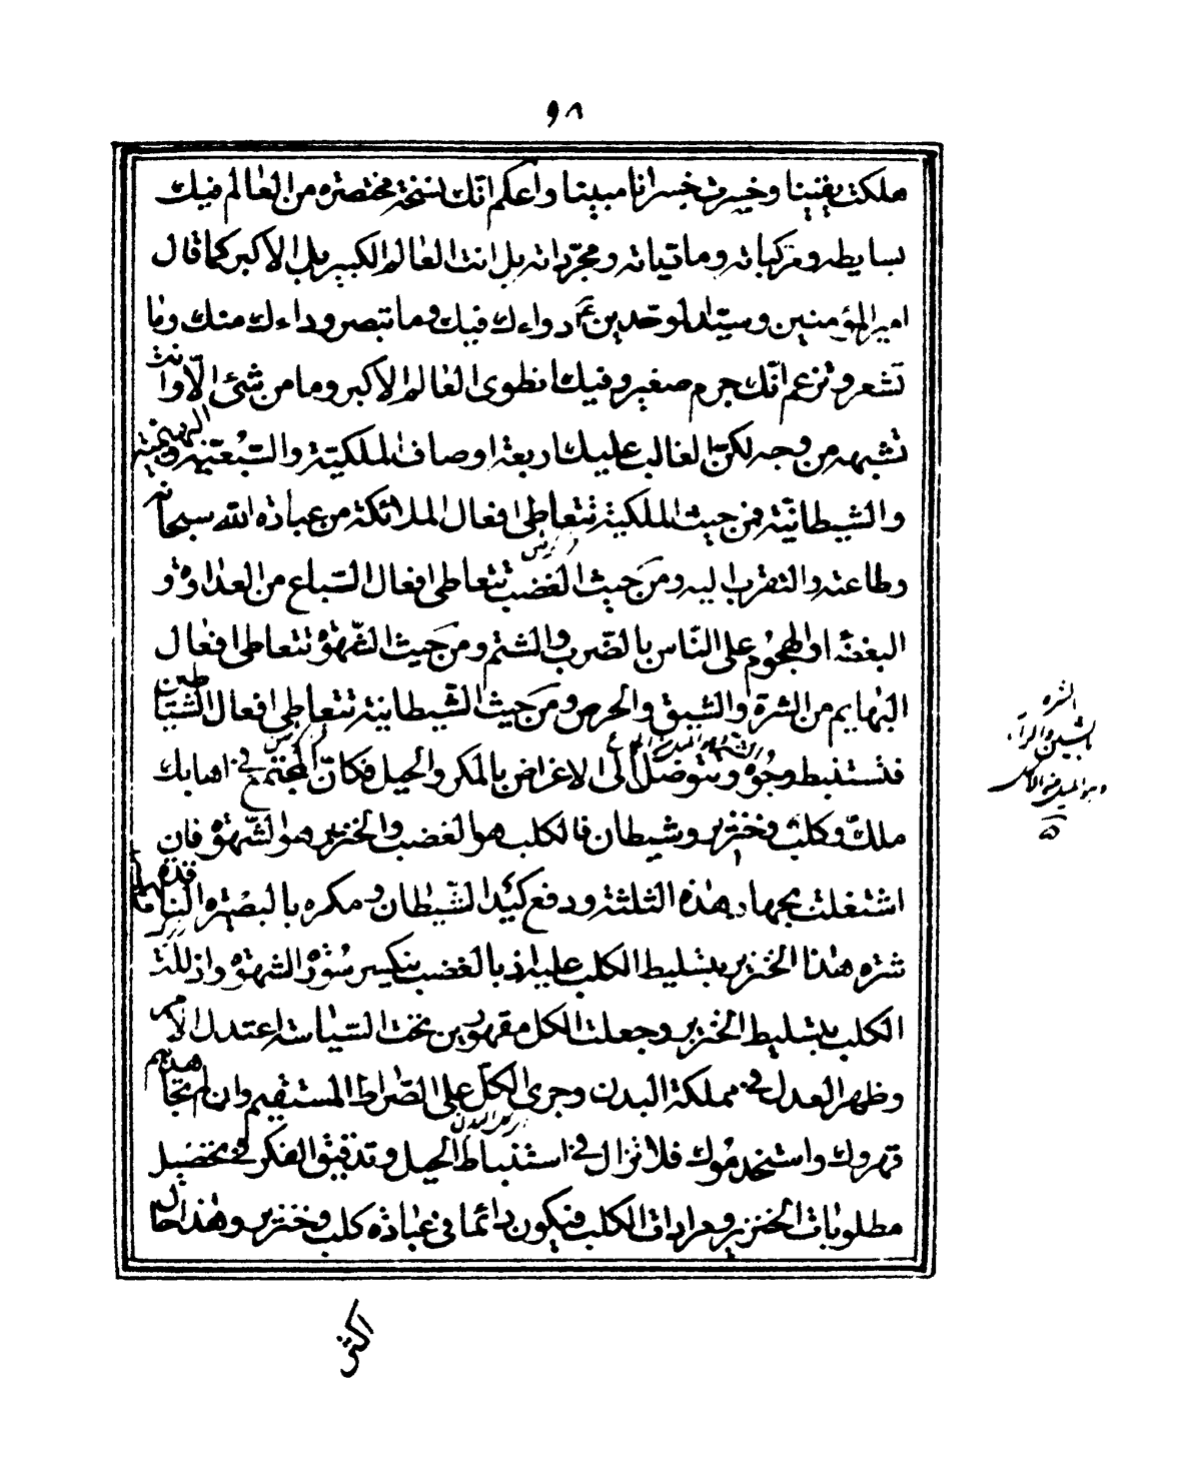 ٩٨
هلكت يقينا وخسرت خسرانا مبينا واعلم انّك نسخة مختصره من العالم فيك
بسايطه ومركباته وماديّاته ومجرّداته بل انت العالم الكبير بل الاكبر كما قال
امير المؤمنين وسيّد الموحّدين ع دواءك فيك وما تبصر وداءك منك وما
تشعر وتزعم انّك جرم صغير وفيك انطوى العالم الاكبر وما من شئ الّا وانت
تشبهه من وجه لكنّ الغالب عليك اربعة اوصاف الملكيّة والسّبُعيّة والبهيميّة
والشيطانيّة فمن حيث الملكيّة تتعاطى افعال الملائكة من عبادة الله سبحانه
وطاعته والتقرب اليه ومن حيث الغضب تتعاطى افعال السّباع من العداوة و
البغضه او الهجوُم على النّاس بالضّرب والشتم ومن حيث الشّهوة تتعاطى افعال
البهايم من الشرة والشبق والحرص ومن حيث الشّيطانية تتعاطى افعال الشّياطين
فتستنبط وجُوه وتتوصّل الى الاغراض بالمكر والحيل فكانّ المجتمع في اهابك
ملكٌ وكلبٌ وخنزير وشيطان فالكلب هو الغضب والخنزير هو الشّهوة فان
اشتغلت بجهاد هذه الثلثة ودفع كيد الشّيطان ومكره بالبصيرة النافذة
شره هذا الخنزير بتسليط الكلب عليه اذ بالغضب ينكسر سَوْرة الشهوة واذللت
الكلب بتسليط الخنزير وجعلت الكل مقهورين تحت السّياسة اعتدل الأمر
وظهر العدل في مملكة البدن وجرى الكلّ على الصّراط المستقيم وان لم تجاهدهم
قهروك واستخدمُوك فلا تزال في استنباط الحيل وتدقيق الفكر في تحصيل
مطلوبات الخنزير ومرادات الكلب فيكون دائما في عبادة كلب وخنزير وهذا حال
الشره
بالشين والراء
اكثر